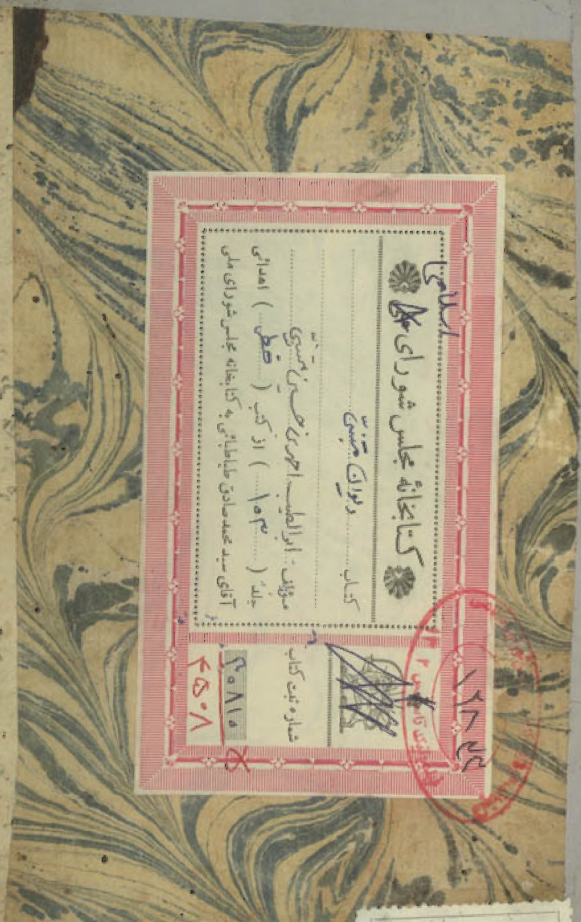 کتابخانهٔ مجلس شورای اسلامی
کتاب دیوان متنبی
مؤلف ابوالطیب احمد بن حسین متنبی
جلد ( ۱۰۳ ) از کتب ( خطی ) اهدائی
آقای سید محمد صادق طباطبائی به کتابخانه مجلس شورای ملی
شماره ثبت کتاب
۳۰۸۱۵
۴۵۰۸